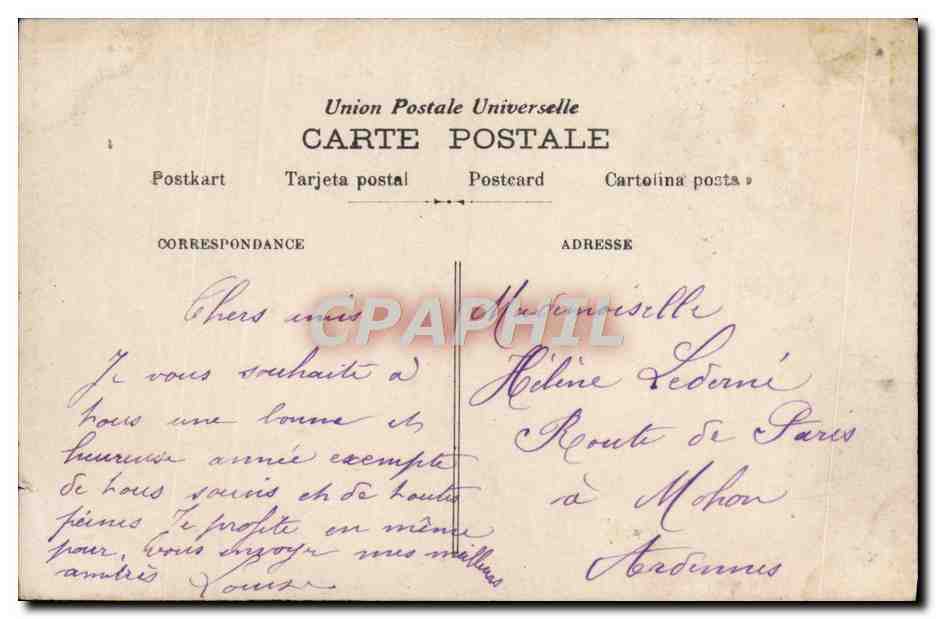 Union Postale Universelle
CARTE POSTALE
Postkart Tarjeta postal Postcard Cartolina posta
CORRESPONDANCE
ADRESSE
Chers amis
Je vous souhaite à
tous une bonne et
heureuse année exempte
de tous soucis et de toutes
peines Je profite en même
pour vous envoyer mes meilleurs
amitiés
Louise
Mademoiselle
Hélène Lederné
Route de Paris
à Mohon
Ardennes
CPAPHIL